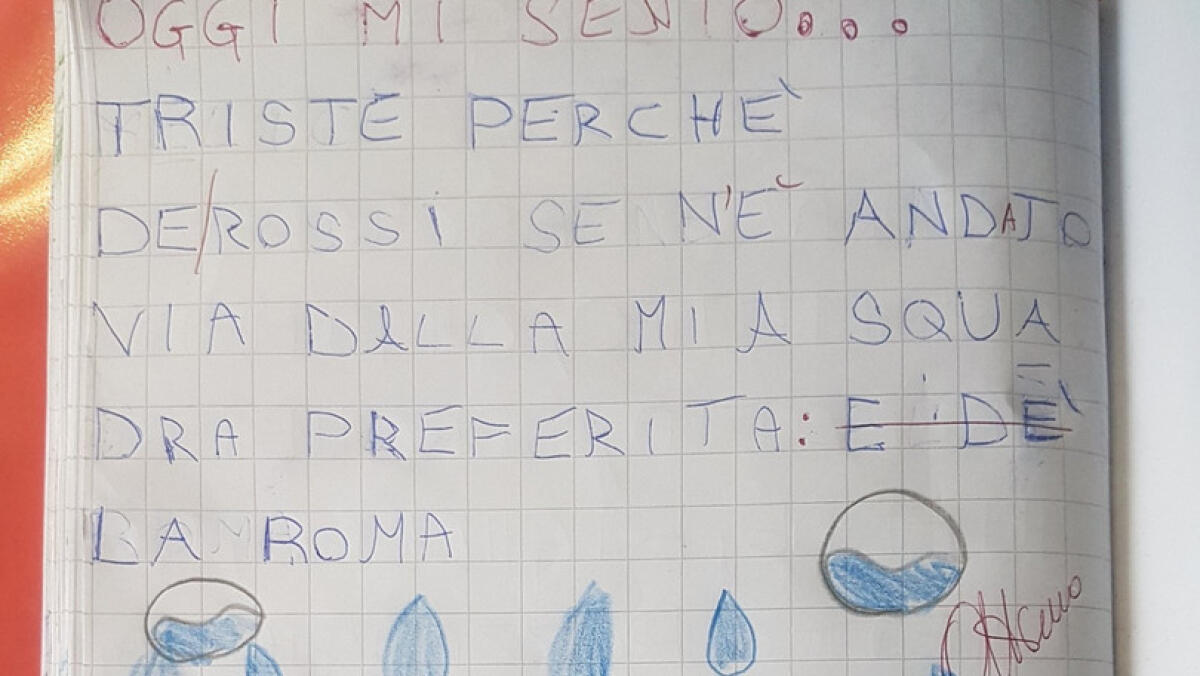 OGGI MI SENTO...
TRISTE PERCHE`
DE/ROSSI SE N'E` ANDATO
VIA DALLA MIA SQUA
DRA PREFERITA: E I DE`
LA ROMA
Ottimo